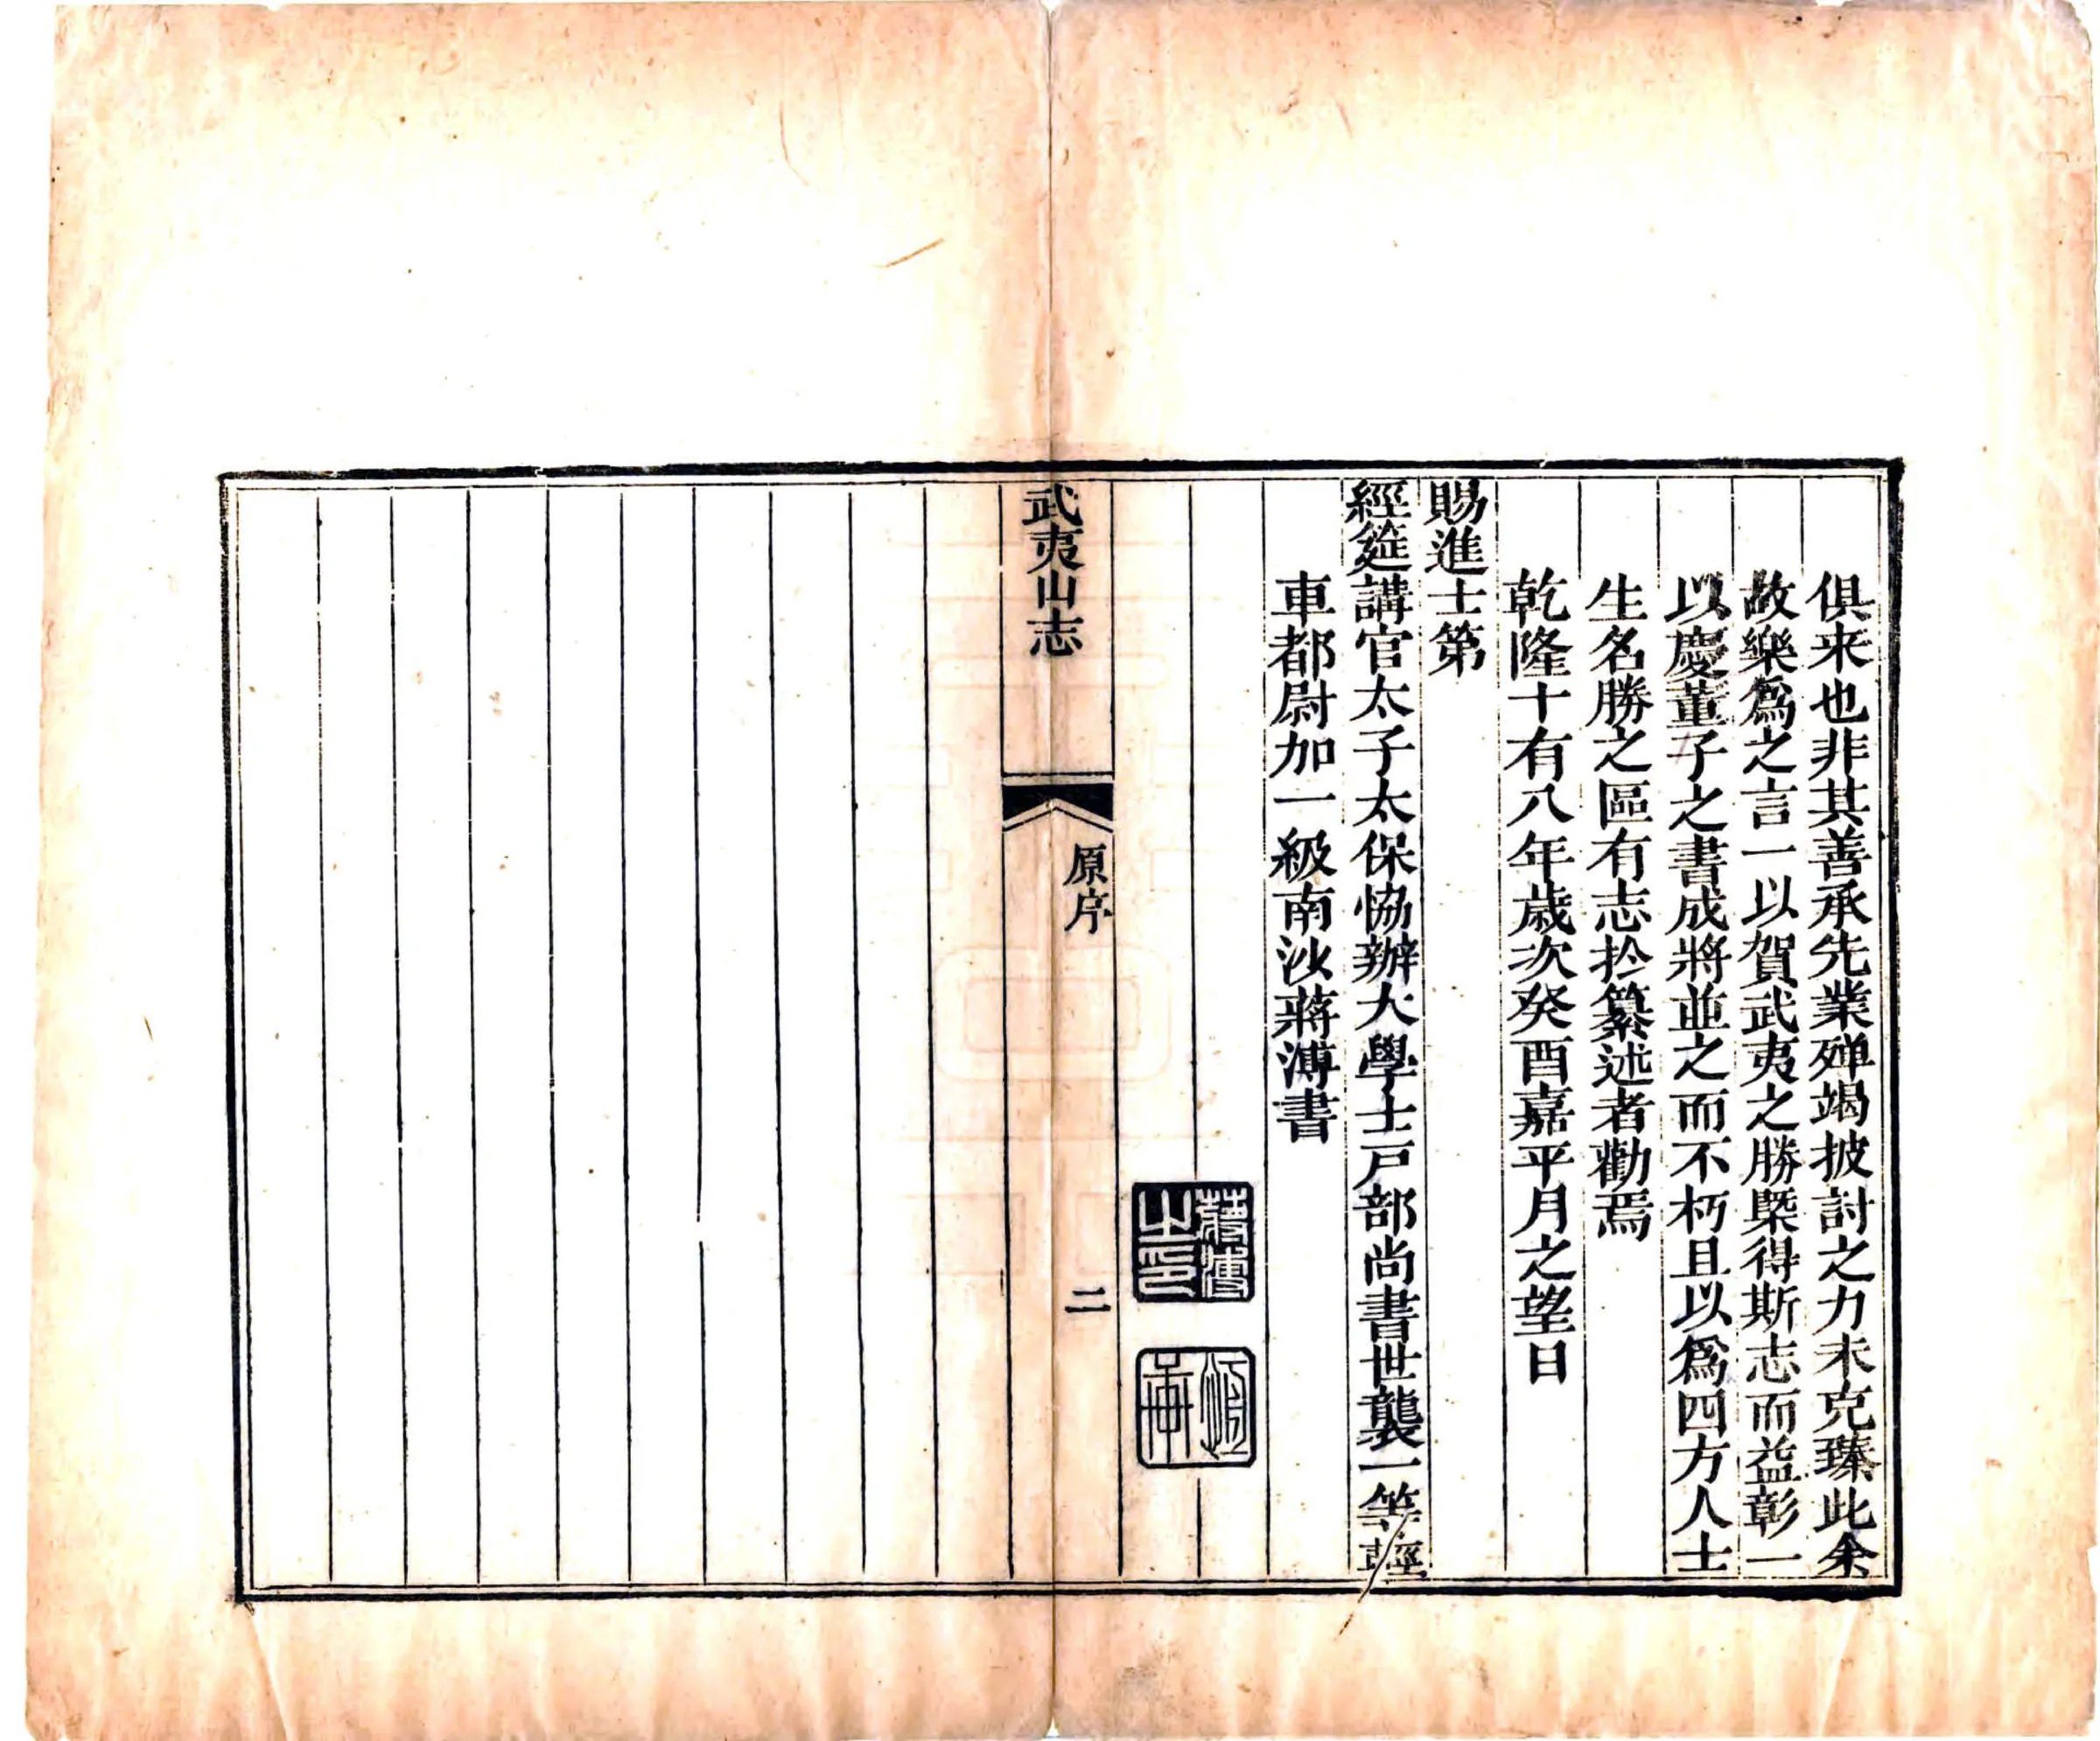 俱来也非其善承先業殫竭披討之力未克臻此余
故樂爲之言一以賀武夷之勝槩得斯志而益彰一
以慶董子之書成將並之而不朽且以爲四方人士
生名勝之區有志扵纂述者勸焉
乾隆十有八年歲次癸酉嘉平月之望日
賜進士第
經筵講官太子太保協辦大學士戸部尚書世襲一等輕
車都尉加一級南沙蔣溥書
蔣溥之印
恒軒
武夷山志
原序
二